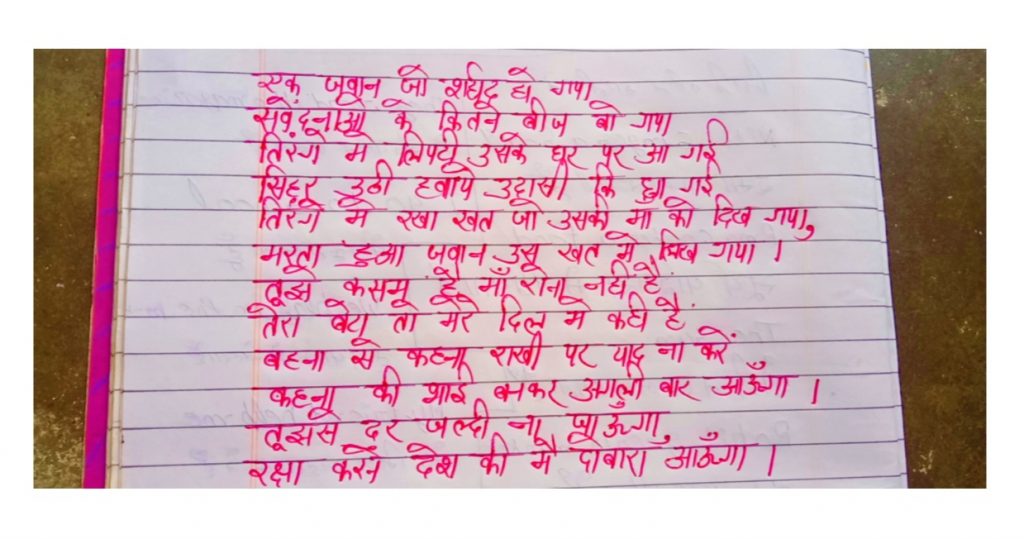 एक जवान जो शहीद हो गया
संवेदनाओ के कितने बीज बो गया
तिरंगे मे लिपटी उसके घर पर आ गई
सिहर उठी हवाये उदासी कि छा गई
तिरंगे मे रखा खत जो उसकी माँ को दिख गया,
मरता हुआ जवान उस खत मे लिख गया ।
तुझे कसम है माँ रोना नही है
तेरा बेटा तो मेरे दिल मे कही है
बहना से कहना राखी पर याद ना करें
कहना की भाई बनकर अगली बार आऊँगा ।
तुझसे दूर जल्दी ना जाऊँगा,
रक्षा करने देश की मै दोबारा आऊँगा ।